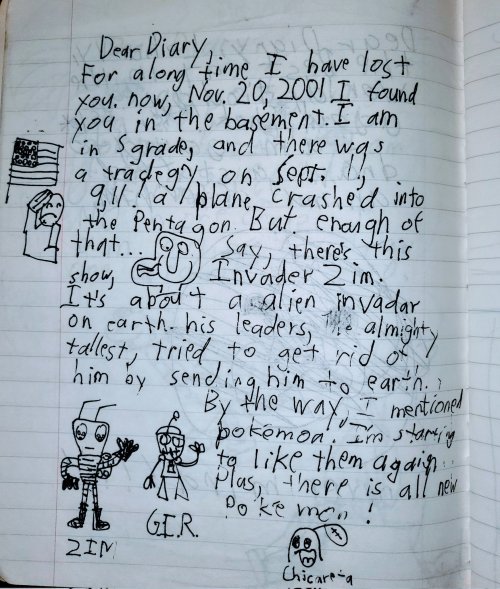 Dear Diary,
For along time I have lost
you. now, Nov. 20, 2001 I found
you in the basement. I am
in 5 grade, and there was
a tradegy on Sept. 11,
911! a plane crashed into
the Pentagon. But enough of
that... Say, there's this
show, Invader Zim.
It's about a alien invadar
on earth. his leaders, the almighty
tallest, tried to get rid of
him by sending him to earth.
By the way, I mentioned
pokemon. I'm starting
to like them again.
Plus, there is all new
Pokemon!
ZIM
G.I.R.